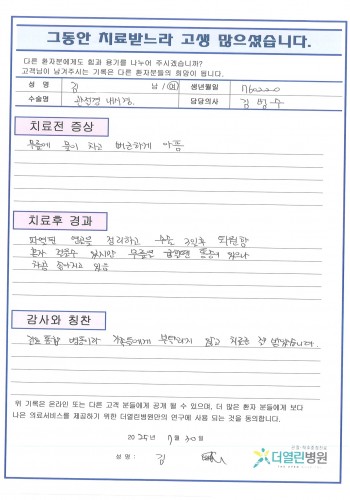 그동안 치료받느라 고생 많으셨습니다.
다른 환자분에게도 힘과 용기를 나누어 주시겠습니까?
고객님이 남겨주시는 기록은 다른 환자분들의 희망이 됩니다.
성 명 김 남 / 여 생년월일 760220
수술명 관절경 내시경 담당의사 김 병 수
치료전 증상
무릎에 물이 차고 뻐근하게 아픔
치료후 경과
파열된 연골을 정리하고 수술 3일후 퇴원함
혼자 걸을수 있지만 무릎에 통증이 있으나
차츰 좋아지고 있음
감사와 칭찬
간호 통합 병동이라 가족들에게 부담되지 않고 치료를 잘 받았습니다.
위 기록은 온라인 또는 다른 고객 분들에게 공개 될 수 있으며, 더 많은 환자 분들에게 보다
나은 의료서비스를 제공하기 위한 더열린병원만의 연구에 사용 되는 것을 동의합니다.
2025년 7월 30일
성 명 : 김
더열린병원